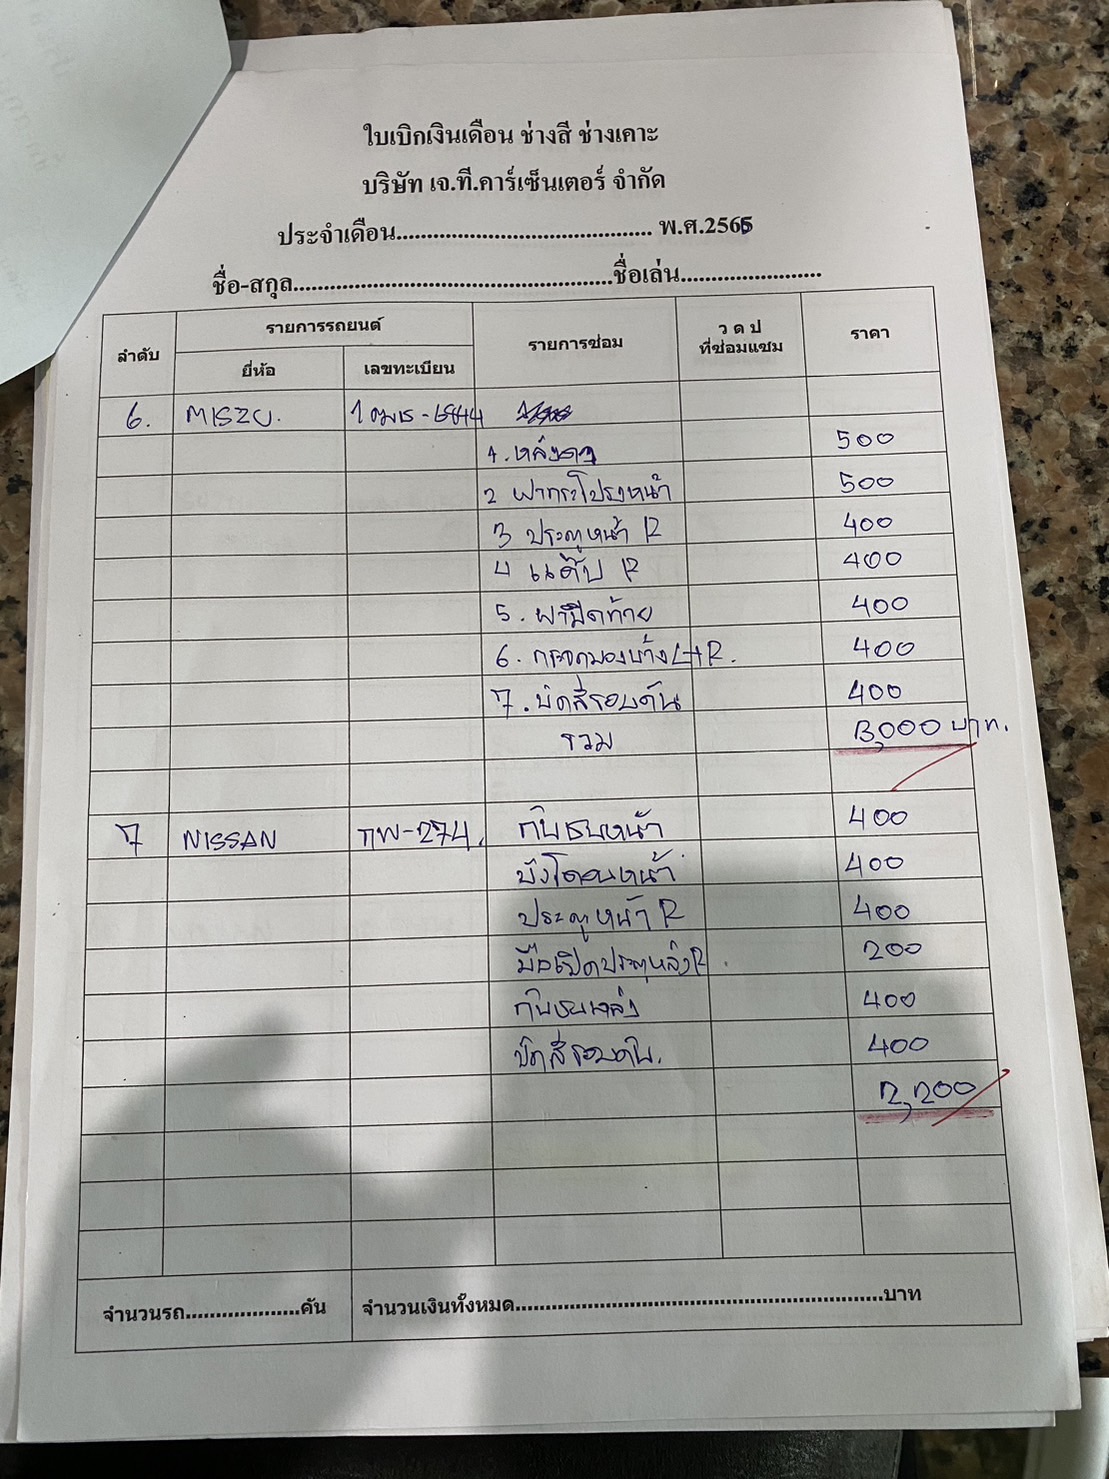 ใบเบิกเงินเดือน ช่างสี ช่างเคาะ
บริษัท เจ.ที.คาร์เซ็นเตอร์ จำกัด
ประจำเดือน.......................................... พ.ศ.2565
ชื่อ-สกุล.....................................................ชื่อเล่น.......................
ลำดับ รายการรถยนต์ รายการซ่อม ว ด ป ที่ซ่อมแซม ราคา
ยี่ห้อ เลขทะเบียน
6. MISZU.
1. หลังคา 500
2 ฝากระโปรงหน้า 500
3 ประตูหน้า R 400
4 แค๊บ R 400
5. ฝาปิดท้าย 400
6. กระจกมองข้าง L+R. 400
7. ขัดสีรอบคัน 400
รวม 3,000 บาท.
7 NISSAN กพ-274. กันชนหน้า 400
บังโคลนหน้า 400
ประตูหน้า R 400
มือเปิดประตูหลัง R. 200
กันชนหลัง 400
ขัดสีรอบคัน. 400
2,200
จำนวนรถ...................คัน จำนวนเงินทั้งหมด.............................................................บาท